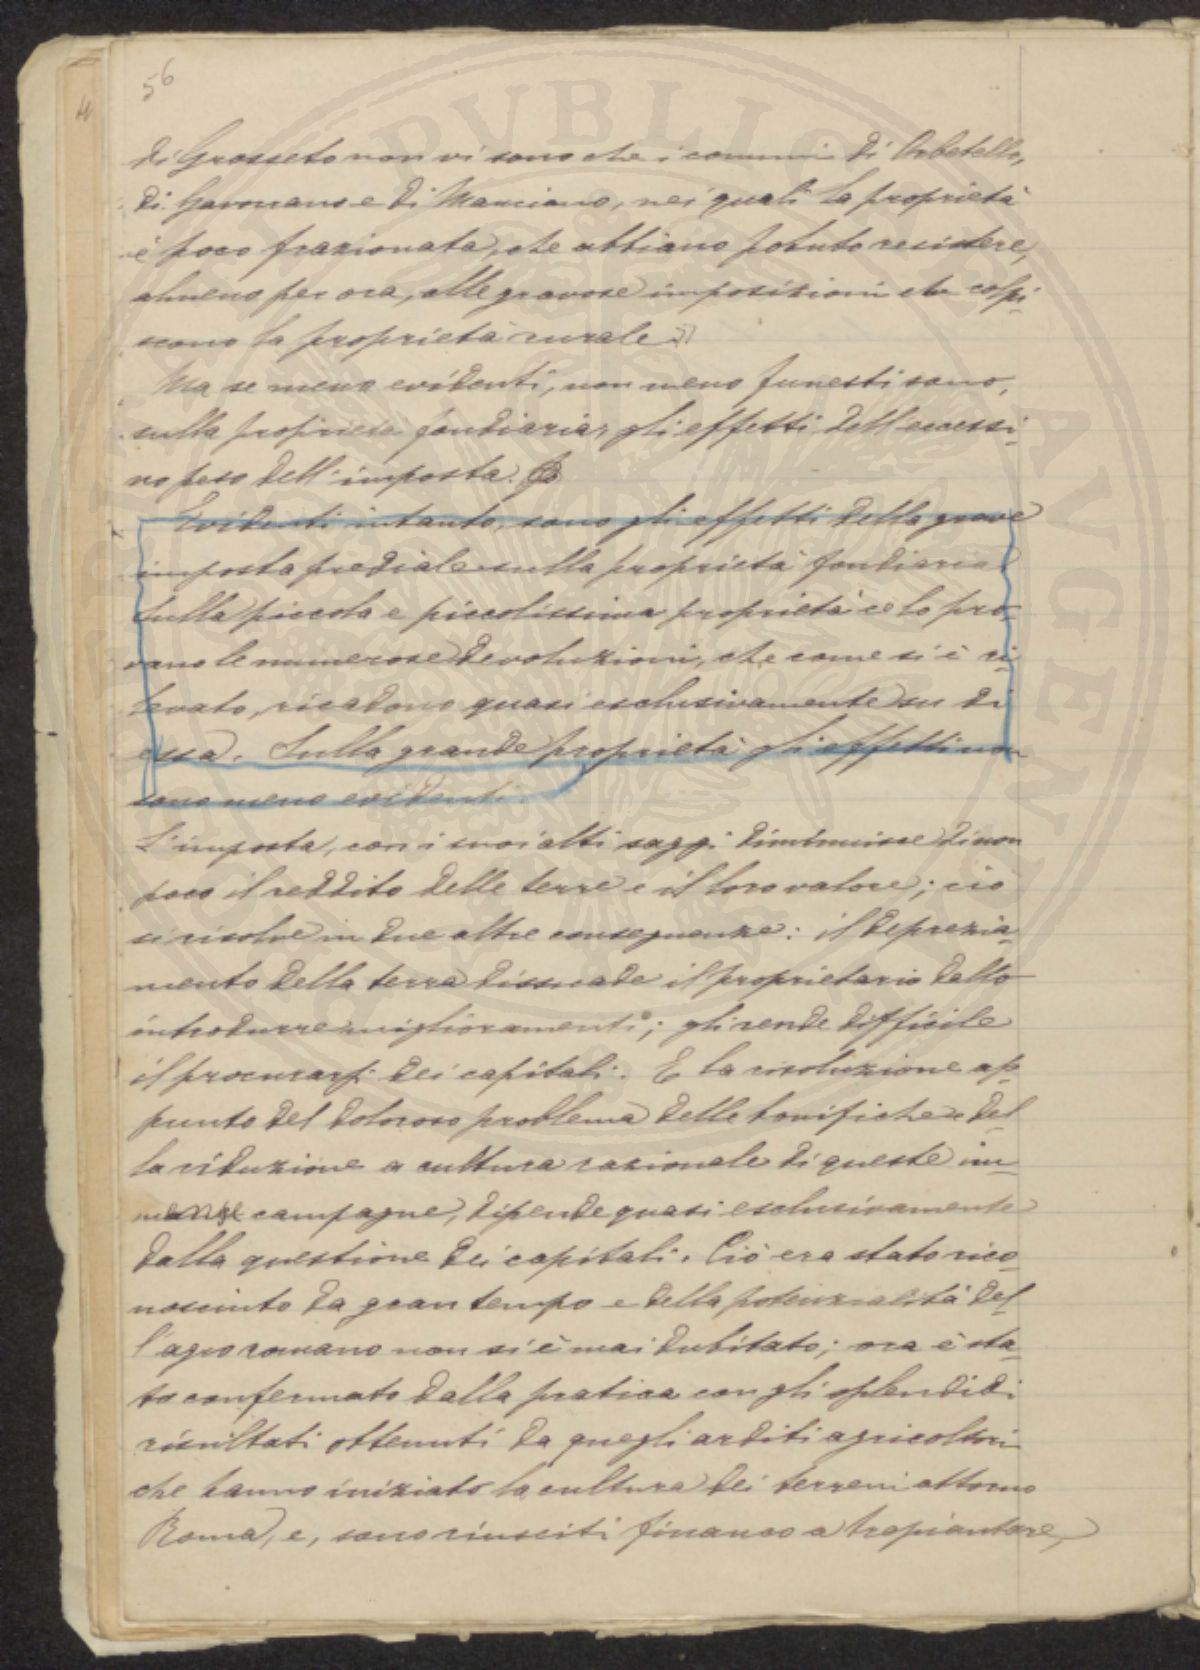 56
di Grosseto non vi sono che i comuni di Orbetello,
di Gavorrano e di Manciano, nei quali la proprietà
è poco frazionata, che abbiano potuto resistere,
almeno per ora, alle gravose imposizioni che colpi-
scono la proprietà rurale.
Ma se meno evidenti, non meno funesti sono,
sulla proprietà fondiaria, gli effetti dell'eccessi-
vo peso dell'imposta.
Evidenti intanto, sono gli effetti della grave
imposta prediale sulla proprietà fondiaria.
Sulla piccola e piccolissima proprietà ce lo pro-
vano le numerose devoluzioni, che come si è ri-
levato, ricadono quasi esclusivamente su di
essa. Sulla grande proprietà gli effetti non
sono meno evidenti.
L'imposta, con i suoi alti saggi diminuisce di non
poco il reddito delle terre e il loro valore; ciò
si risolve in due altre conseguenze: il deprezia-
mento della terra dissuade il proprietario dallo
introdurre miglioramenti; gli rende difficile
il procurarsi dei capitali. E la risoluzione ap-
punto del doloroso problema delle bonifiche e del-
la riduzione a cultura razionale di queste im-
mense campagne, dipende quasi esclusivamente
dalla questione dei capitali. Ciò era stato rico-
nosciuto da gran tempo e della potenzialità del-
l'agro romano non si è mai dubitato; ora è sta-
to confermato dalla pratica con gli splendidi
risultati ottenuti da quegli arditi agricoltori
che hanno iniziato la cultura dei terreni attorno
Roma, e, sono riusciti financo a trapiantare,
PVBLICAE
AVGENDAE